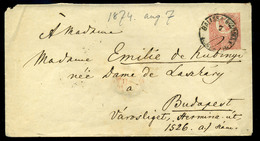 1874. aug 7
A Madame
Madame Emilie de Kubinyi
née Dame de
Budapest
Városliget, Hermina út
1526. a/ szám.